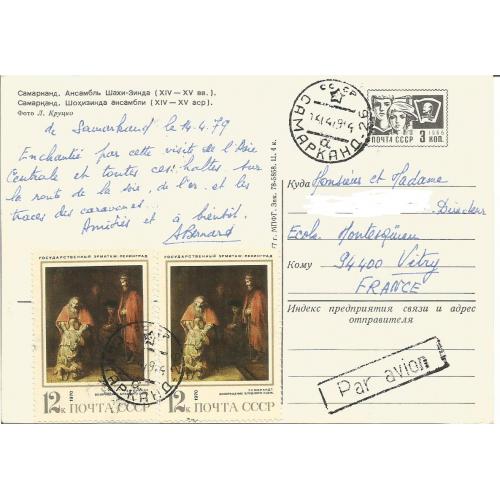 Самарканд. Ансамбль Шахи-Зинда (XIV — XV вв.).
Самарқанд. Шоҳизинда ансамбли (XIV — XV аср).
Фото Л. Круцко
de Samarkand le 14.4.79
Enchantée par cette visite de l'Asie
Centrale et toutes ces haltes sur
la route de la soie, de l'or et les
traces des caravanes...
Amitiés et à bientôt.
ABernard
77 г. МПФГ. Зак. 78-5858. Ц. 4 к.
СССР
САМАРКАНД-29
14.4.79
ПОЧТА СССР
1966
3 КОП.
Куда Monsieur et Madame
Directeur
Ecole Montesquieu
Кому 94400 Vitry
FRANCE
Индекс предприятия связи и адрес
отправителя
Par avion
ГОСУДАРСТВЕННЫЙ ЭРМИТАЖ. ЛЕНИНГРАД
РЕМБРАНДТ
ВОЗВРАЩЕНИЕ БЛУДНОГО СЫНА
1970
12к ПОЧТА СССР
ГОСУДАРСТВЕННЫЙ ЭРМИТАЖ. ЛЕНИНГРАД
РЕМБРАНДТ
ВОЗВРАЩЕНИЕ БЛУДНОГО СЫНА
1970
12к ПОЧТА СССР